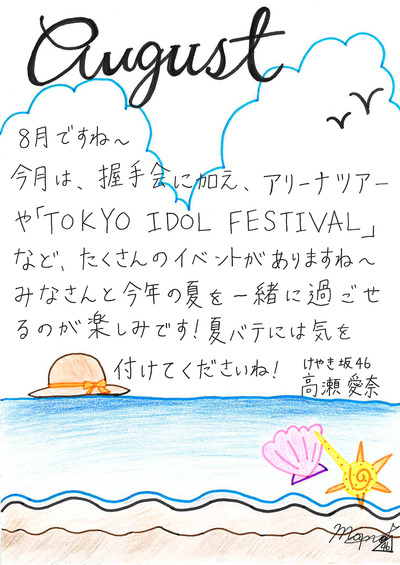 August
8月ですね～
今月は、握手会に加え、アリーナツアー
や「TOKYO IDOL FESTIVAL」
など、たくさんのイベントがありますね～
みなさんと今年の夏を一緒に過ごせ
るのが楽しみです!夏バテには気を
付けてくださいね!
けやき坂46
高瀬愛奈